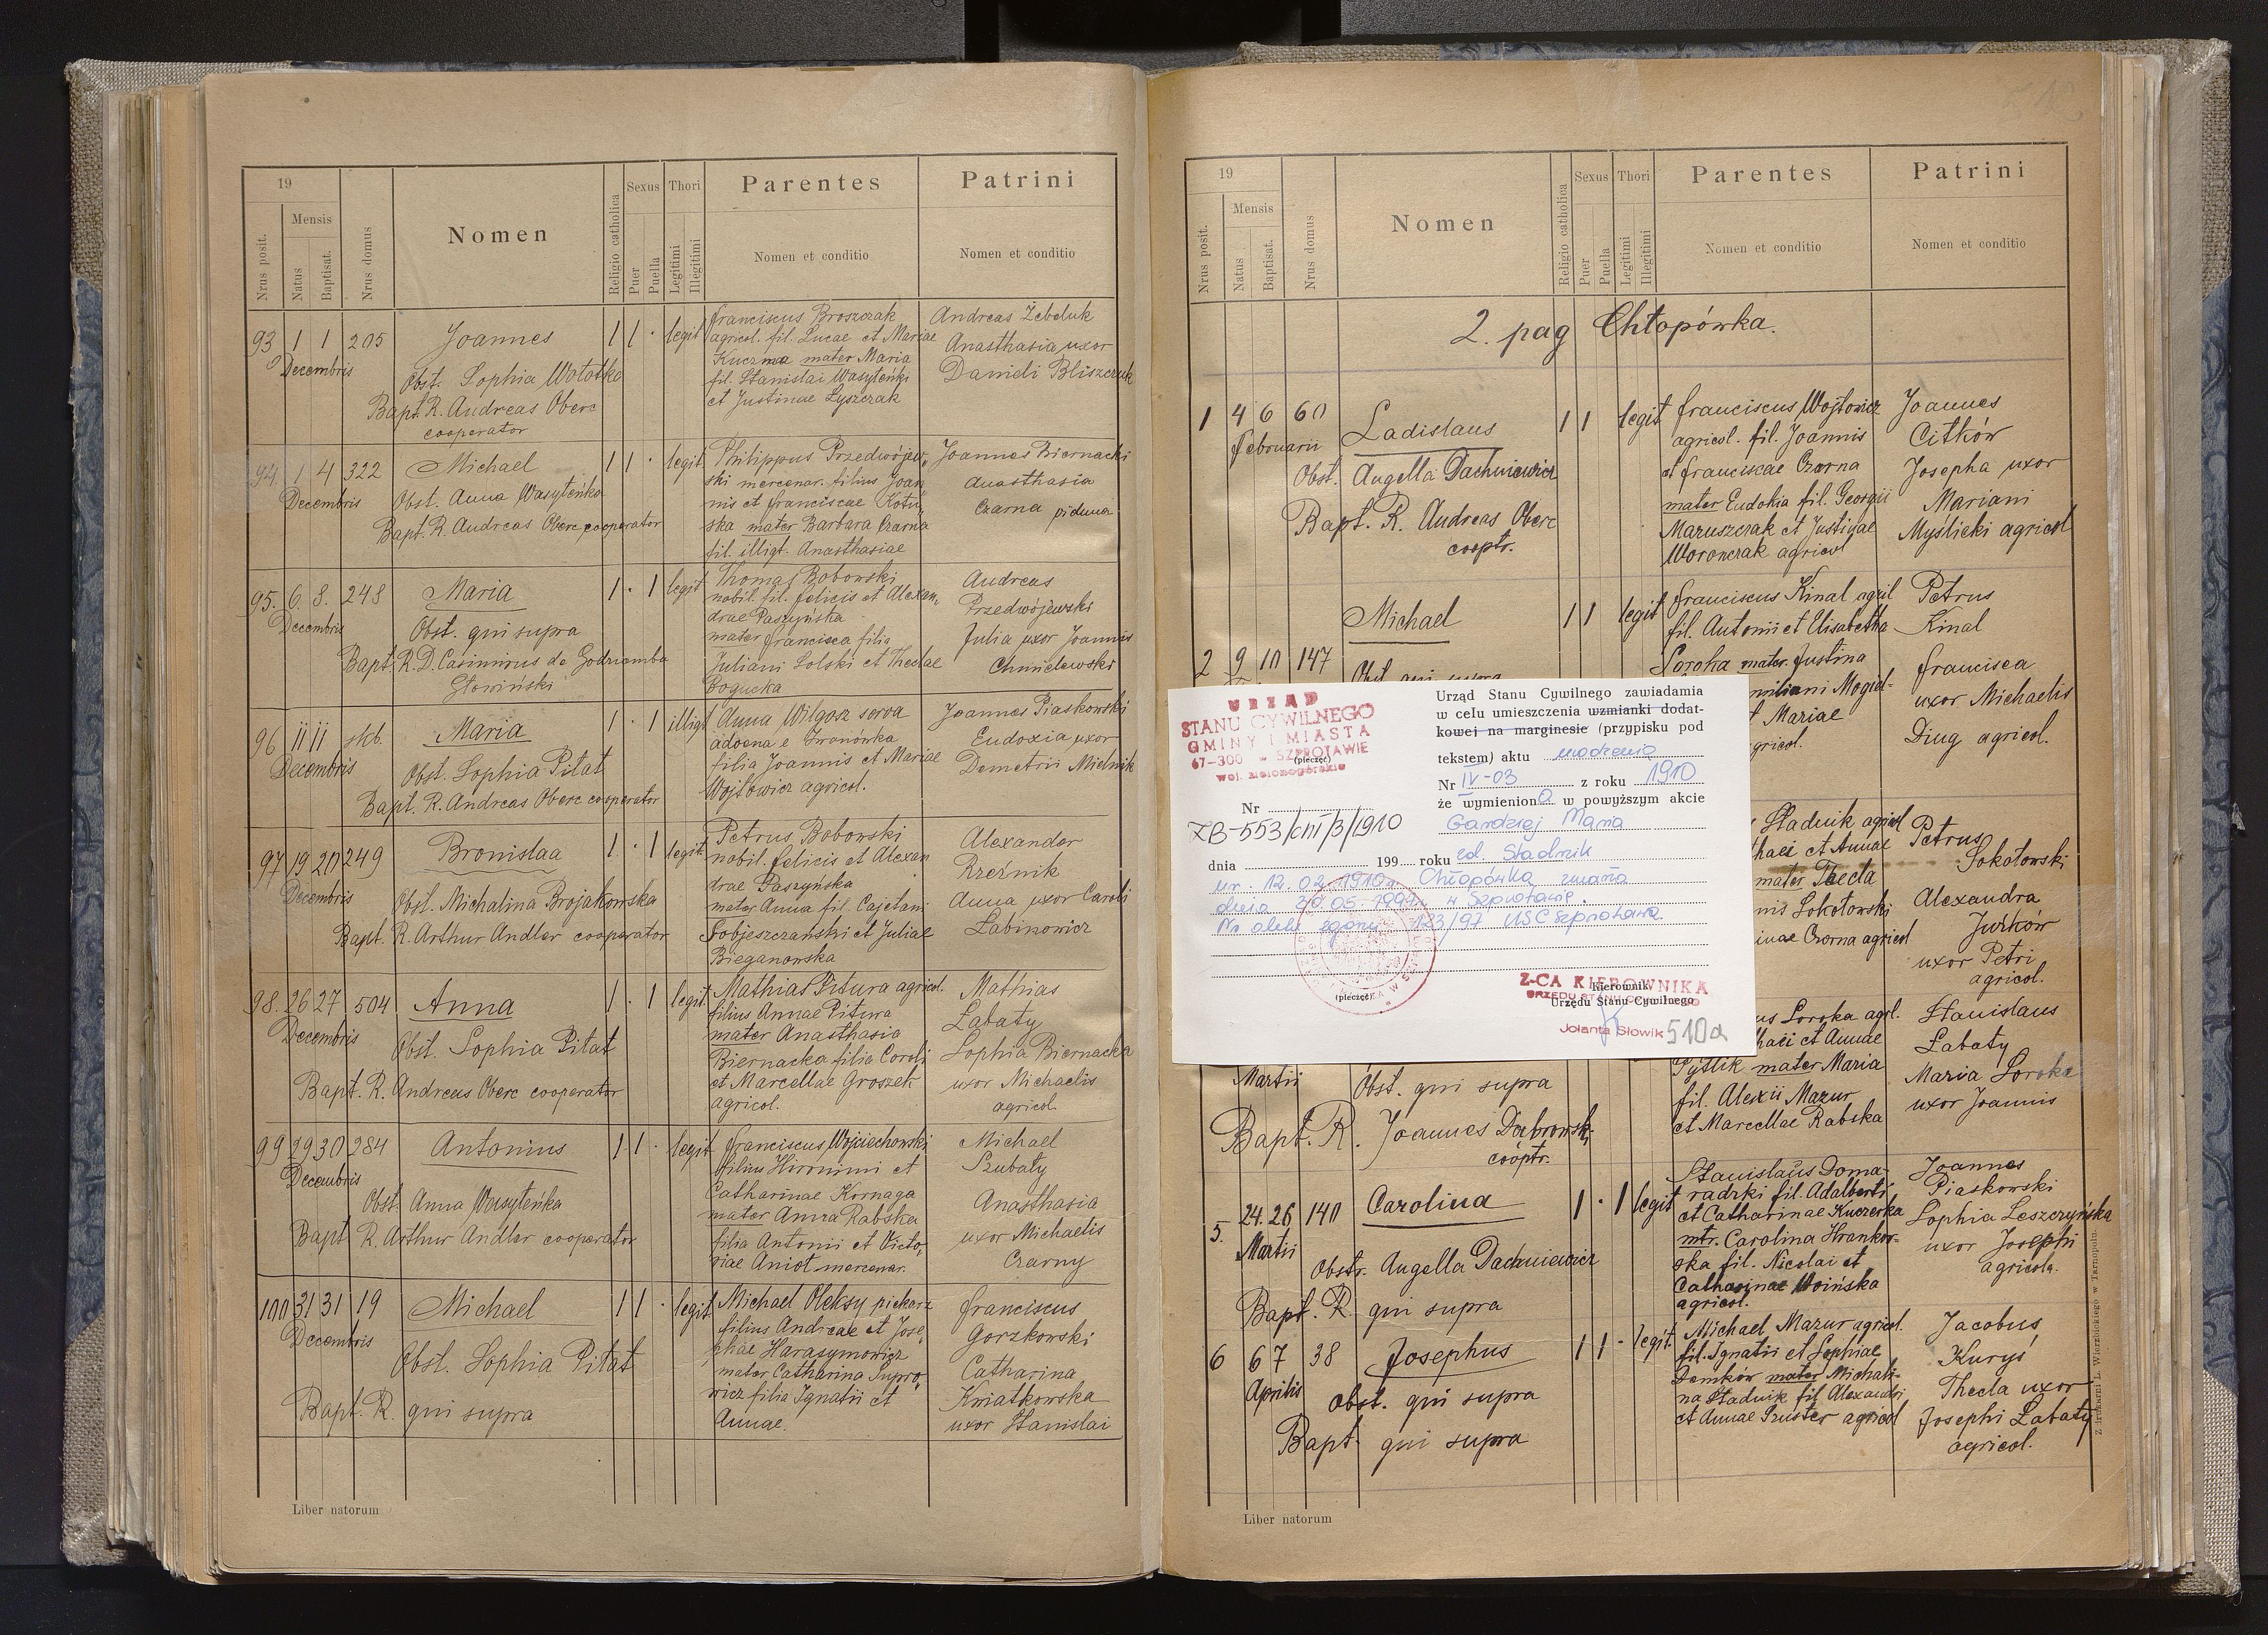 19
Mensis
Nrus posit.
Natus
Baptisat.
Nrus domus
Nomen
Religio catholica
Sexus
Puer
Puella
Thori
Legitimi
Illegitimi
Parentes
Nomen et conditio
Patrini
Nomen et conditio
93 1 1 205 Joannes 1 1 · legit
Decembris
Obst. Sophia Wołotko
Bapt. R. Andreas Oberc
cooperator
Franciscus Broszczak
agricol. fil. Lucae et Mariae
Kuczma mater Maria
fil. Stanislai Wasyleńki
et Justinae Łyszczak
Andreas Żebeluk
Anasthasia uxor
Danieli Bliszczuk
94. 1 4 322 Michael 1 1 · legit
Decembris
Obst. Anna Wasyleńka
Bapt. R. Andreas Oberc cooperator
Philippus Przedwójew
ski mercenar. filius Joan
nis et Franciscae Kotu
ska mater Barbara Czarna
fil. illigt. Anasthasiae
Joannes Biernacki
Anasthasia
Czarna vidua
95. 6. 8. 248 Maria 1 · 1 legit
Decembris
Obst. qui supra
Bapt. R. D. Casimirus de Godziemba
Głowiński
Thomas Bobowski
nobil. fil. Felicis et Alexan
drae Paszyńska
mater Francisca filia
Juliani Solski et Theclae
Bogucka
Andreas
Przedwójewski
Julia uxor Joannis
Chmielewski
96 11 11 skb. Maria 1 · 1 illigt
Decembris
Obst. Sophia Pitat
Bapt. R. Andreas Oberc cooperator
Anna Wilgosz serva
advena e Iwanówka
filia Joannis et Mariae
Wojtowicz agricol.
Joannes Piaskowski
Eudoxia uxor
Demetrii Mielnik
97 19 20 249 Bronislaa 1 · 1 legit.
Decembris
Obst. Michalina Brojakowska
Bapt. R. Arthur Andler cooperator
Petrus Bobowski
nobil. Felicis et Alexan
drae Paszyńska
mater Anna fil. Cajetani
Sobjeszczański et Juliae
Bieganowska
Alexander
Rzeźnik
Anna uxor Caroli
Łabinowicz
98. 26 27 504 Anna 1 · 1 legit.
Decembris
Obst. Sophia Pitat
Bapt. R. Andreas Oberc cooperator
Mathias Pitura agricol.
filius Annae Pitura
mater Anasthasia
Biernacka filia Caroli
et Marcellae Groszek
agricol.
Mathias
Łabaty
Sophia Biernacka
uxor Michaelis
agricol.
99 29 30 284 Antonius 1 1 · legit
Decembris
Obst. Anna Wasyleńka
Bapt R. Arthur Andler cooperator
Franciscus Wojciechowski
filius Hironimi et
Catharinae Kornaga
mater Anna Rabska
filia Antonii et Victo
riae Aniot mercenar.
Michael
Szubaty
Anasthasia
uxor Michaelis
Czarny
100 31 31 19 Michael 1 1 · legit.
Decembris
Obst. Sophia Pitat
Bapt. R. qui supra
Michael Oleksy piekarz
filius Andreae et Jose
phae Harasymowicz
mater Catharina Supro
wicz filia Ignatii et
Annae.
Franciscus
Gorzkowski
Catharina
Kwiatkowska
uxor Stanislai
Liber natorum
19
Mensis
Nrus posit.
Natus
Baptisat.
Nrus domus
Nomen
Religio catholica
Sexus
Puer
Puella
Thori
Legitimi
Illegitimi
Parentes
Nomen et conditio
Patrini
Nomen et conditio
2. pag Chłopówka.
1 4 6 60 Ladislaus 1 1 legit
Februarii
Obst. Angella Dachniewicz
Bapt. R. Andreas Oberc
cooptr.
Franciscus Wojtowicz
agricol. fil. Joannis
et Franciscae Czarna
mater Eudokia fil. Georgii
Maruszczak et Justinae
Woronczak agricol
Joannes
Citków
Josepha uxor
Mariani
Myślicki agricol
2 9 10 147 Michael 1 1 legit
Obst. qui supra
Franciscus Kinal agril
fil. Antonii et Elisabetha
Soroka mater Justina
miliani Mogiel-
t Mariae
gricol.
Petrus
Kinal
Francisca
uxor Michaelis
Diug agricol.
URZĄD
STANU CYWILNEGO
GMINY I MIASTA
67-300 w SZPROTAWIE
(pieczęć)
woj. zielonogórskie
Nr
ZB-553/CIII/3/1910
Urząd Stanu Cywilnego zawiadamia
w celu umieszczenia wzmianki dodat-
kowej na marginesie (przypisku pod
tekstem) aktu urodzenia
Nr IV-03 z roku 1910
że wymieniona w powyższym akcie
Gardziej Maria
dnia 199 roku zd. Stadnik
ur. 12.02.1910r. Chłopówka zmarła
dnia 20.05.1997r. w Szprotawie.
Nr aktu zgonu 123/97 USC Szprotawa
(pieczęć)
Z-CA KIEROWNIKA
Kierownik
URZĘDU STANU CYWILNEGO
Urzędu Stanu Cywilnego
Jolanta Słowik
510a
Stadnik agricol
haei et Annae
mater Thecla
nis Sokołowski
inae Czorna agricol
Petrus
Sokołowski
Alexandra
Jurków
uxor Petri
agricol.
Martii
Obst. qui supra
Bapt. R. Joannes Dąbrowski
cooptr.
us Soroka agrl.
haei et Annae
Pytlik mater Maria
fil. Alexii Mazur
et Marcellae Rabska
Stanislaus
Łabaty
Maria Soroka
uxor Joannis
5. 24. 26 140 Carolina 1 · 1 legit
Martii
Obstr. Angella Dachniewicz
Bapt. R. qui supra
Stanislaus Doma-
radzki fil. Adalberti
et Catharinae Kuczerka
mtr. Carolina Hrankow-
ska fil. Nicolai et
Catharinae Woińska
agricol.
Joannes
Piaskowski
Sophia Leszczyńska
uxor Josephi
agricola.
6 6 7 38 Josephus 1 1 · legit.
Aprilis
Obst. qui supra
Bapt. qui supra
Michael Mazur agricol.
fil. Ignatii et Sophiae
Domków mater Michali-
na Stadnik fil Alexandri
et Annae Szuster agricol
Jacobus
Kuryś
Thecla uxor
Josephi Łabaty
agricol.
Liber natorum
Z drukarni L. Wierzbickiego w Tarnopolu.